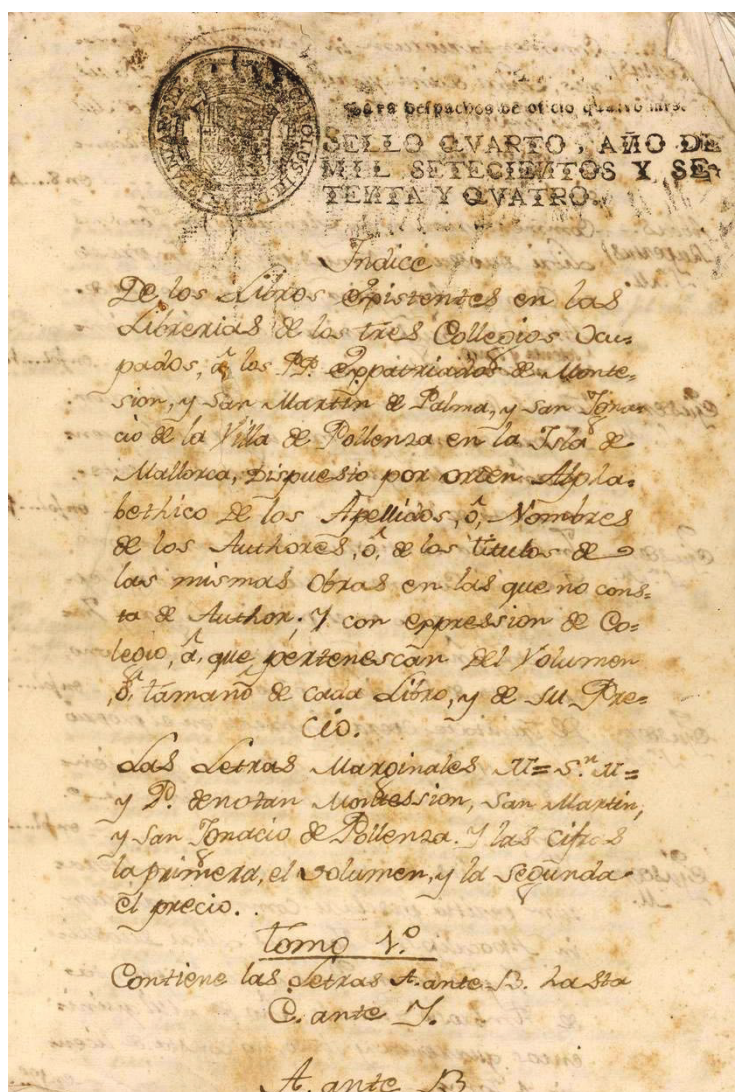 CAROLUS III D G HISPANIAR REX
Para despachos de oficio quatro mrs.
SELLO QVARTO, AÑO DE
MIL SETECIENTOS Y SE-
TENTA Y QVATRO.
Indice
De los Libros existentes en las
Librerias de los tres Collegios Ocu=
pados, â los PP. expatriados de Monte=
sion, y San Martin de Palma, y San Igna=
cio de la Villa de Pollenza en la Isla de
Mallorca, Dispuesto por orden Alpha=
bethico de los Apellidos, ô, Nombres
de los Authores, ô, de los titulos de
las mismas Obras en las que no cons=
ta de Author; Y con expression de Co=
legio, â, que pertenescan del Volumen
ô, tamaño de cada Libro, y de su Pre=
cio.
Las Letras Marginales M= S.n M=
y P. denotan Montession, San Martin,
y San Ignacio de Pollenza. Y las cifras
la primera, el volumen, y la segunda
el precio.
Tomo 1.º
Contiene las Letras A. ante B. hasta
C. ante I.
A. ante B